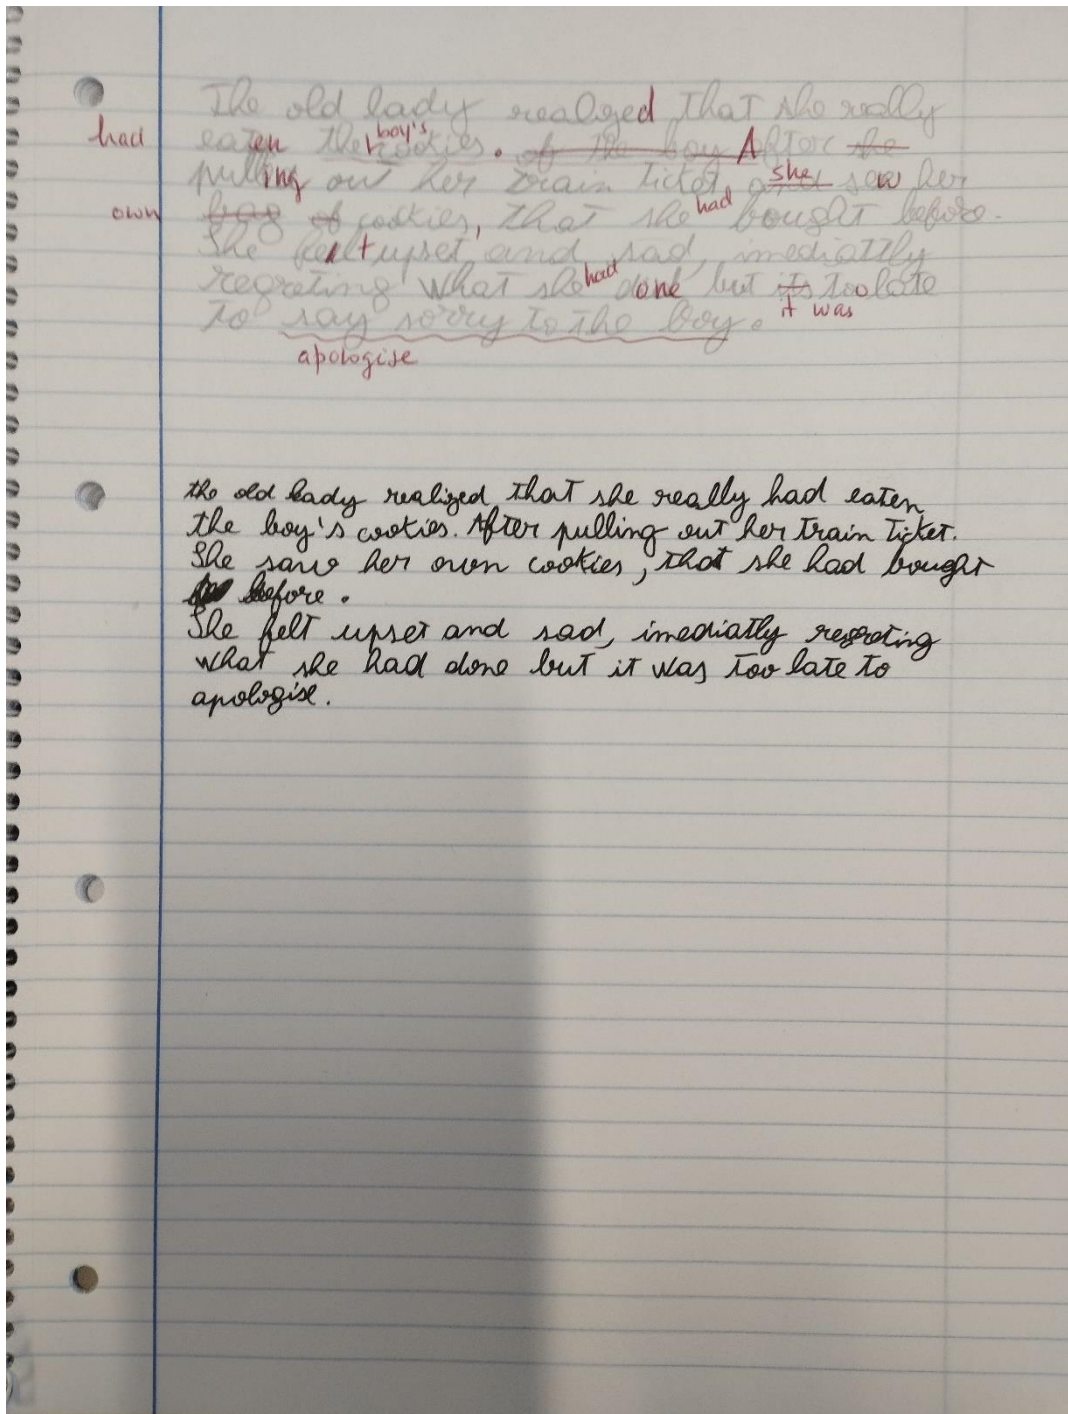 The old lady realized that she really
had eaten the boy's cookies. of the boy After she
pulling out her train ticket, and she saw her
own bag of cookies, that she had bought before.
She felt upset and sad, imediattly
regreting what she had done but its it was too late
to say sorry to the boy.
apologise
the old lady realized that she really had eaten
the boy's cookies. After pulling out her train ticket.
She saw her own cookies, that she had bought
before.
She felt upset and sad, imediatly regreting
what she had done but it was too late to
apologise.